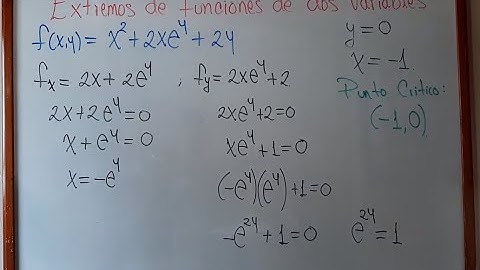 Extremos de funciones de dos variables
f(x,y) = x² + 2xe^y + 2y
f_x = 2x + 2e^y ; f_y = 2xe^y + 2
2x + 2e^y = 0
x + e^y = 0
x = -e^y
2xe^y + 2 = 0
xe^y + 1 = 0
(-e^y)(e^y) + 1 = 0
-e^2y + 1 = 0
e^2y = 1
y = 0
x = -1.
Punto Critico:
(-1,0)